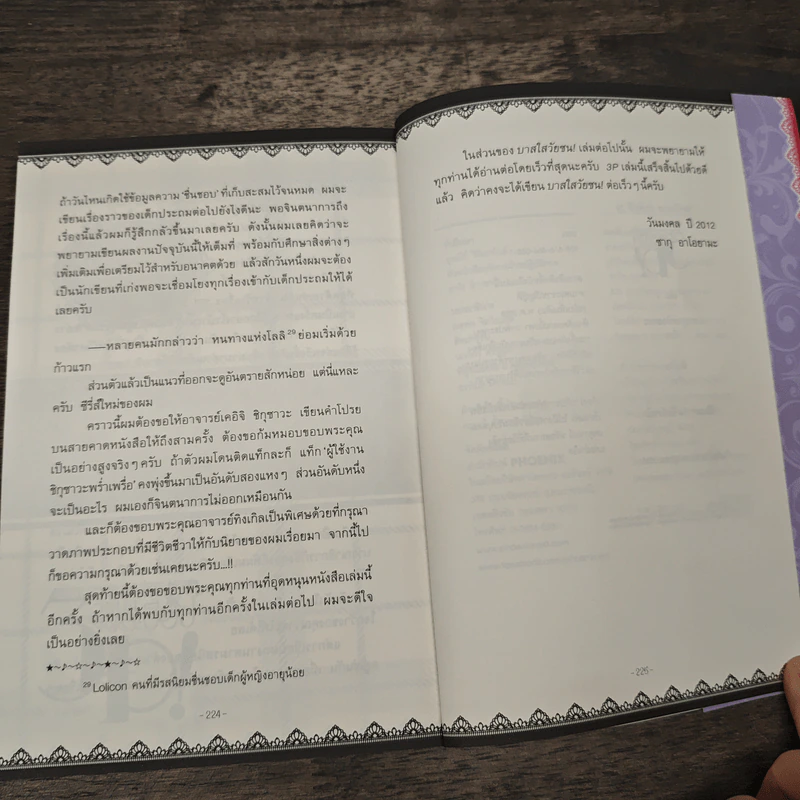 ถ้าวันไหนเกิดใช้ข้อมูลความ 'ชื่นชอบ' ที่เก็บสะสมไว้จนหมด ผมจะ
เขียนเรื่องราวของเด็กประถมต่อไปยังไงดีนะ พอจินตนาการถึง
เรื่องนี้แล้วผมก็รู้สึกกลัวขึ้นมาเลยครับ ดังนั้นผมเลยคิดว่าจะ
พยายามเขียนผลงานปัจจุบันนี้ให้เต็มที่ พร้อมกับศึกษาสิ่งต่างๆ
เพิ่มเติมเพื่อเตรียมไว้สำหรับอนาคตด้วย แล้วสักวันหนึ่งผมจะต้อง
เป็นนักเขียนที่เก่งพอจะเชื่อมโยงทุกเรื่องเข้ากับเด็กประถมให้ได้
เลยครับ
——หลายคนมักกล่าวว่า หนทางแห่งโลลิ 29 ย่อมเริ่มด้วย
ก้าวแรก
ส่วนตัวแล้วเป็นแนวที่ออกจะดูอันตรายสักหน่อย แต่นี่แหละ
ครับ ซีรี่ส์ใหม่ของผม
คราวนี้ผมต้องขอให้อาจารย์เคอิจิ ชิกุซาวะ เขียนคำโปรย
บนสายคาดหนังสือให้ถึงสามครั้ง ต้องขอก้มหมอบขอบพระคุณ
เป็นอย่างสูงจริงๆ ครับ ถ้าตัวผมโดนติดแท็กละก็ แท็ก 'ผู้ใช้งาน
ชิกุซาวะพร่ำเพรื่อ' คงพุ่งขึ้นมาเป็นอันดับสองแหงๆ ส่วนอันดับหนึ่ง
จะเป็นอะไร ผมเองก็จินตนาการไม่ออกเหมือนกัน
และก็ต้องขอบพระคุณอาจารย์ทิงเกิลเป็นพิเศษด้วยที่กรุณา
วาดภาพประกอบที่มีชีวิตชีวาให้กับนิยายของผมเรื่อยมา จากนี้ไป
ก็ขอความกรุณาด้วยเช่นเคยนะครับ...!!
สุดท้ายนี้ต้องขอขอบพระคุณทุกท่านที่อุดหนุนหนังสือเล่มนี้
อีกครั้ง ถ้าหากได้พบกับทุกท่านอีกครั้งในเล่มต่อไป ผมจะดีใจ
เป็นอย่างยิ่งเลย
★~♪~☆~♪~★~♪~☆
29 Lolicon คนที่มีรสนิยมชื่นชอบเด็กผู้หญิงอายุน้อย
-224-
ในส่วนของ บาสใสวัยซน! เล่มต่อไปนั้น ผมจะพยายามให้
ทุกท่านได้อ่านต่อโดยเร็วที่สุดนะครับ 3P เล่มนี้เสร็จสิ้นไปด้วยดี
แล้ว คิดว่าคงจะได้เขียน บาสใสวัยซน! ต่อเร็วๆ นี้ครับ
วันมงคล ปี 2012
ซากุ อาโอยามะ
-225-